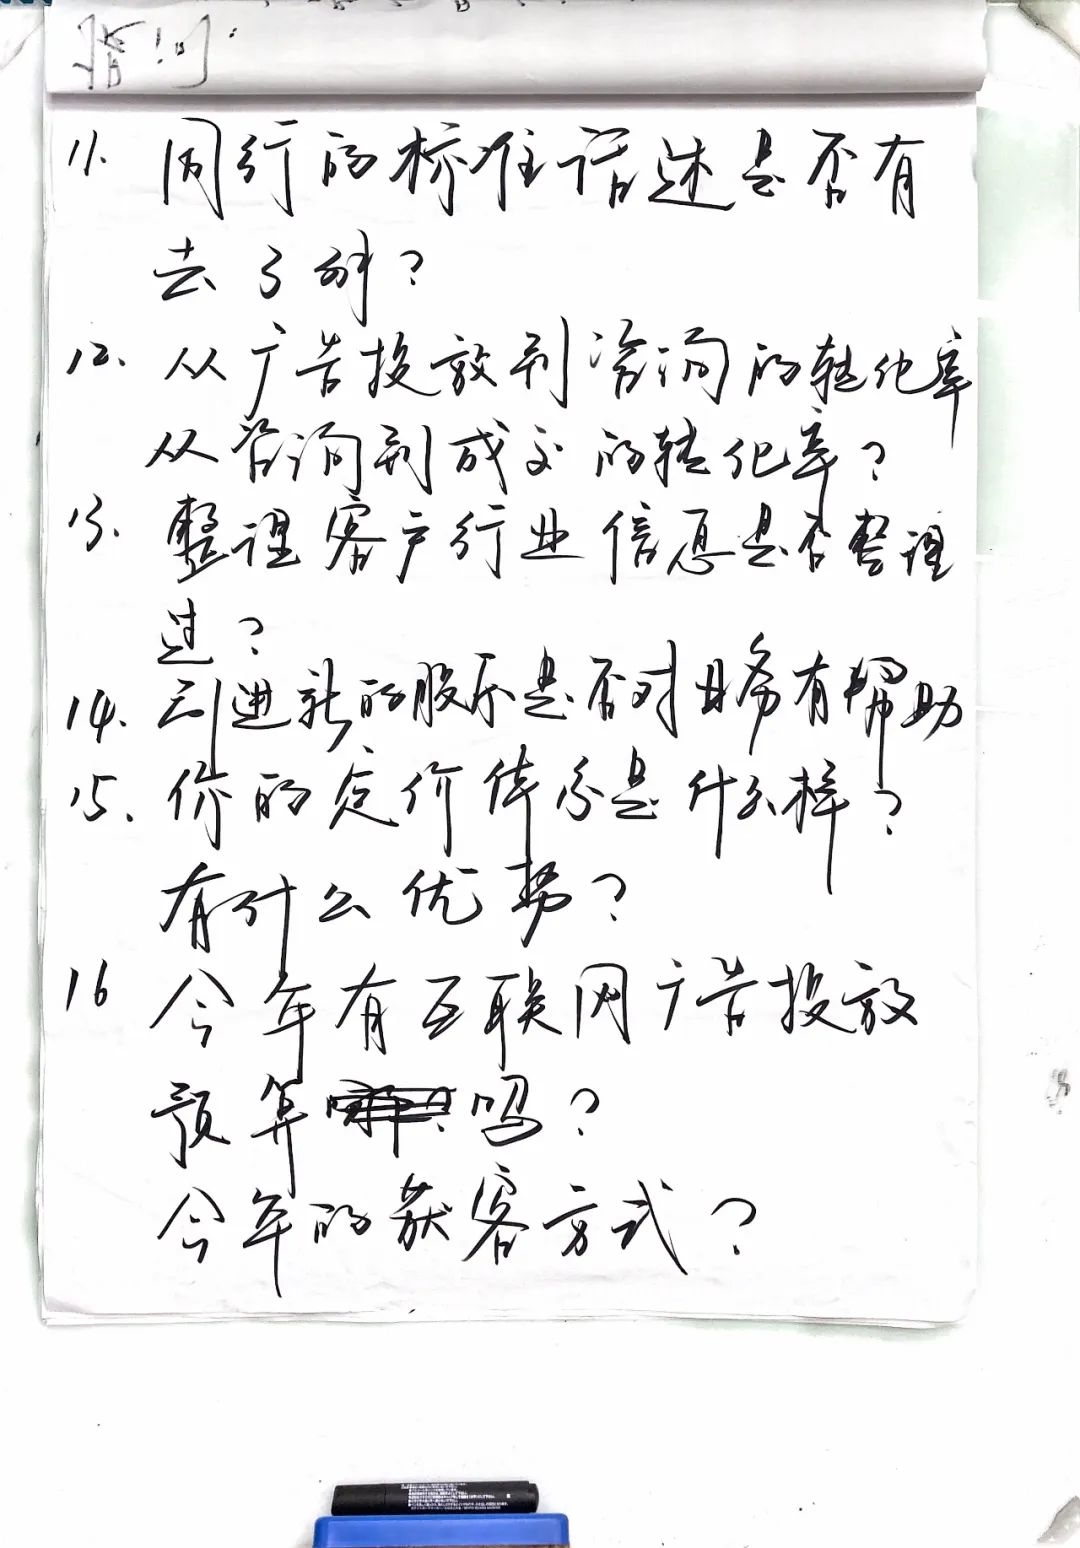 11. 同行的标准话述是否有
去了解?
12. 从广告投放到咨询的转化率
从咨询到成交的转化率?
13. 整理客户行业信息是否整理
过?
14. 引进新的股东是否对业务有帮助
15. 你的定价体系是什么样?
有什么优势?
16 今年有互联网广告投放
预算吗?
今年的获客方式?